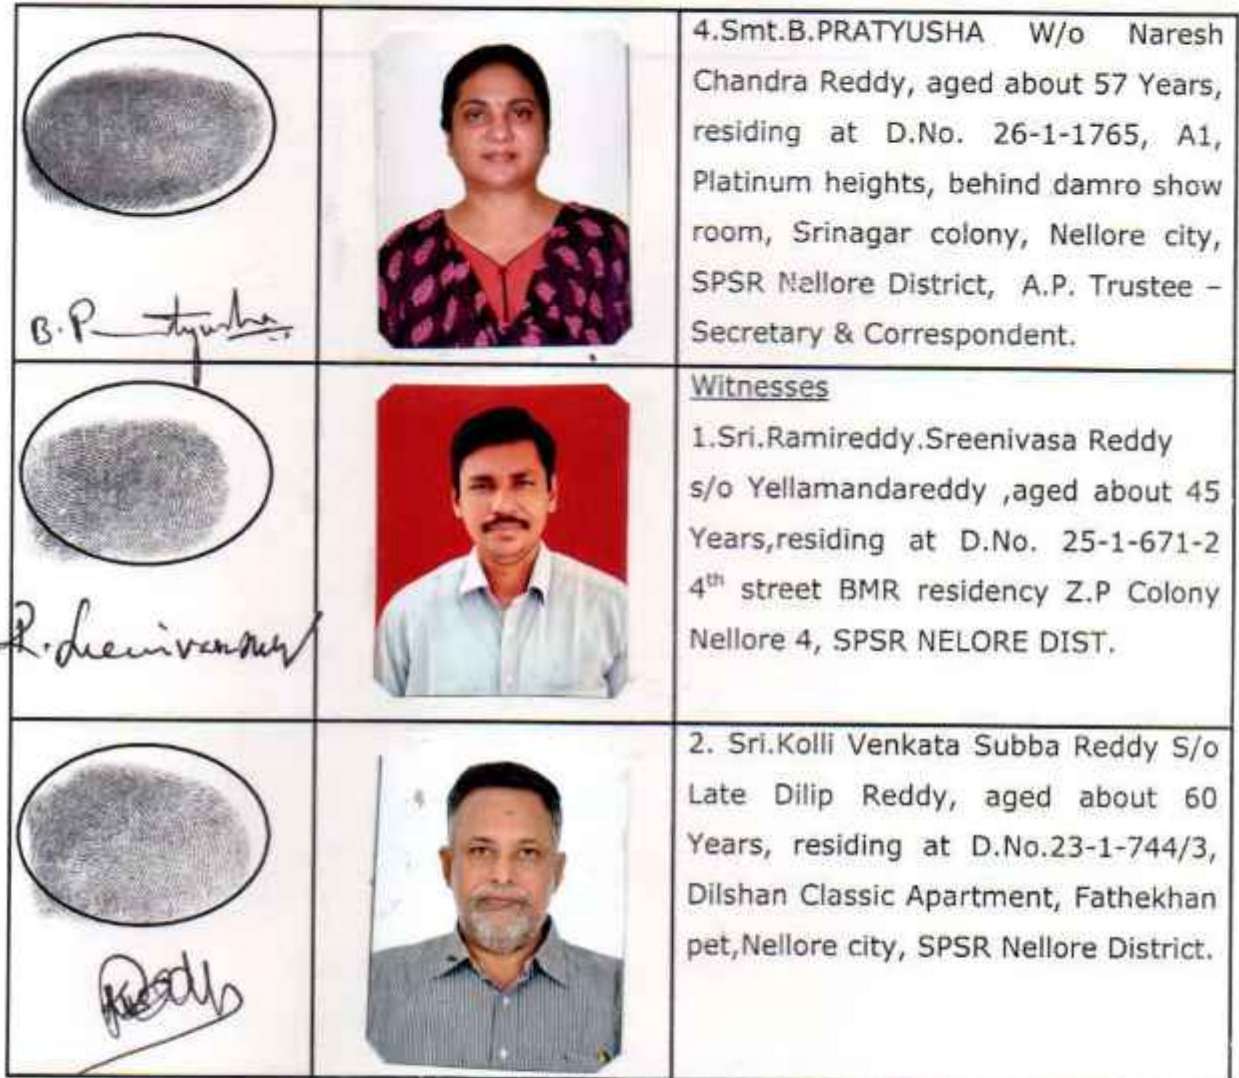 4.Smt.B.PRATYUSHA W/o Naresh
Chandra Reddy, aged about 57 Years,
residing at D.No. 26-1-1765, A1,
Platinum heights, behind damro show
room, Srinagar colony, Nellore city,
SPSR Nellore District, A.P. Trustee –
Secretary & Correspondent.
B. Pratyusha
Witnesses
1.Sri.Ramireddy.Sreenivasa Reddy
s/o Yellamandareddy ,aged about 45
Years,residing at D.No. 25-1-671-2
4th street BMR residency Z.P Colony
Nellore 4, SPSR NELORE DIST.
2. Sri.Kolli Venkata Subba Reddy S/o
Late Dilip Reddy, aged about 60
Years, residing at D.No.23-1-744/3,
Dilshan Classic Apartment, Fathekhan
pet,Nellore city, SPSR Nellore District.